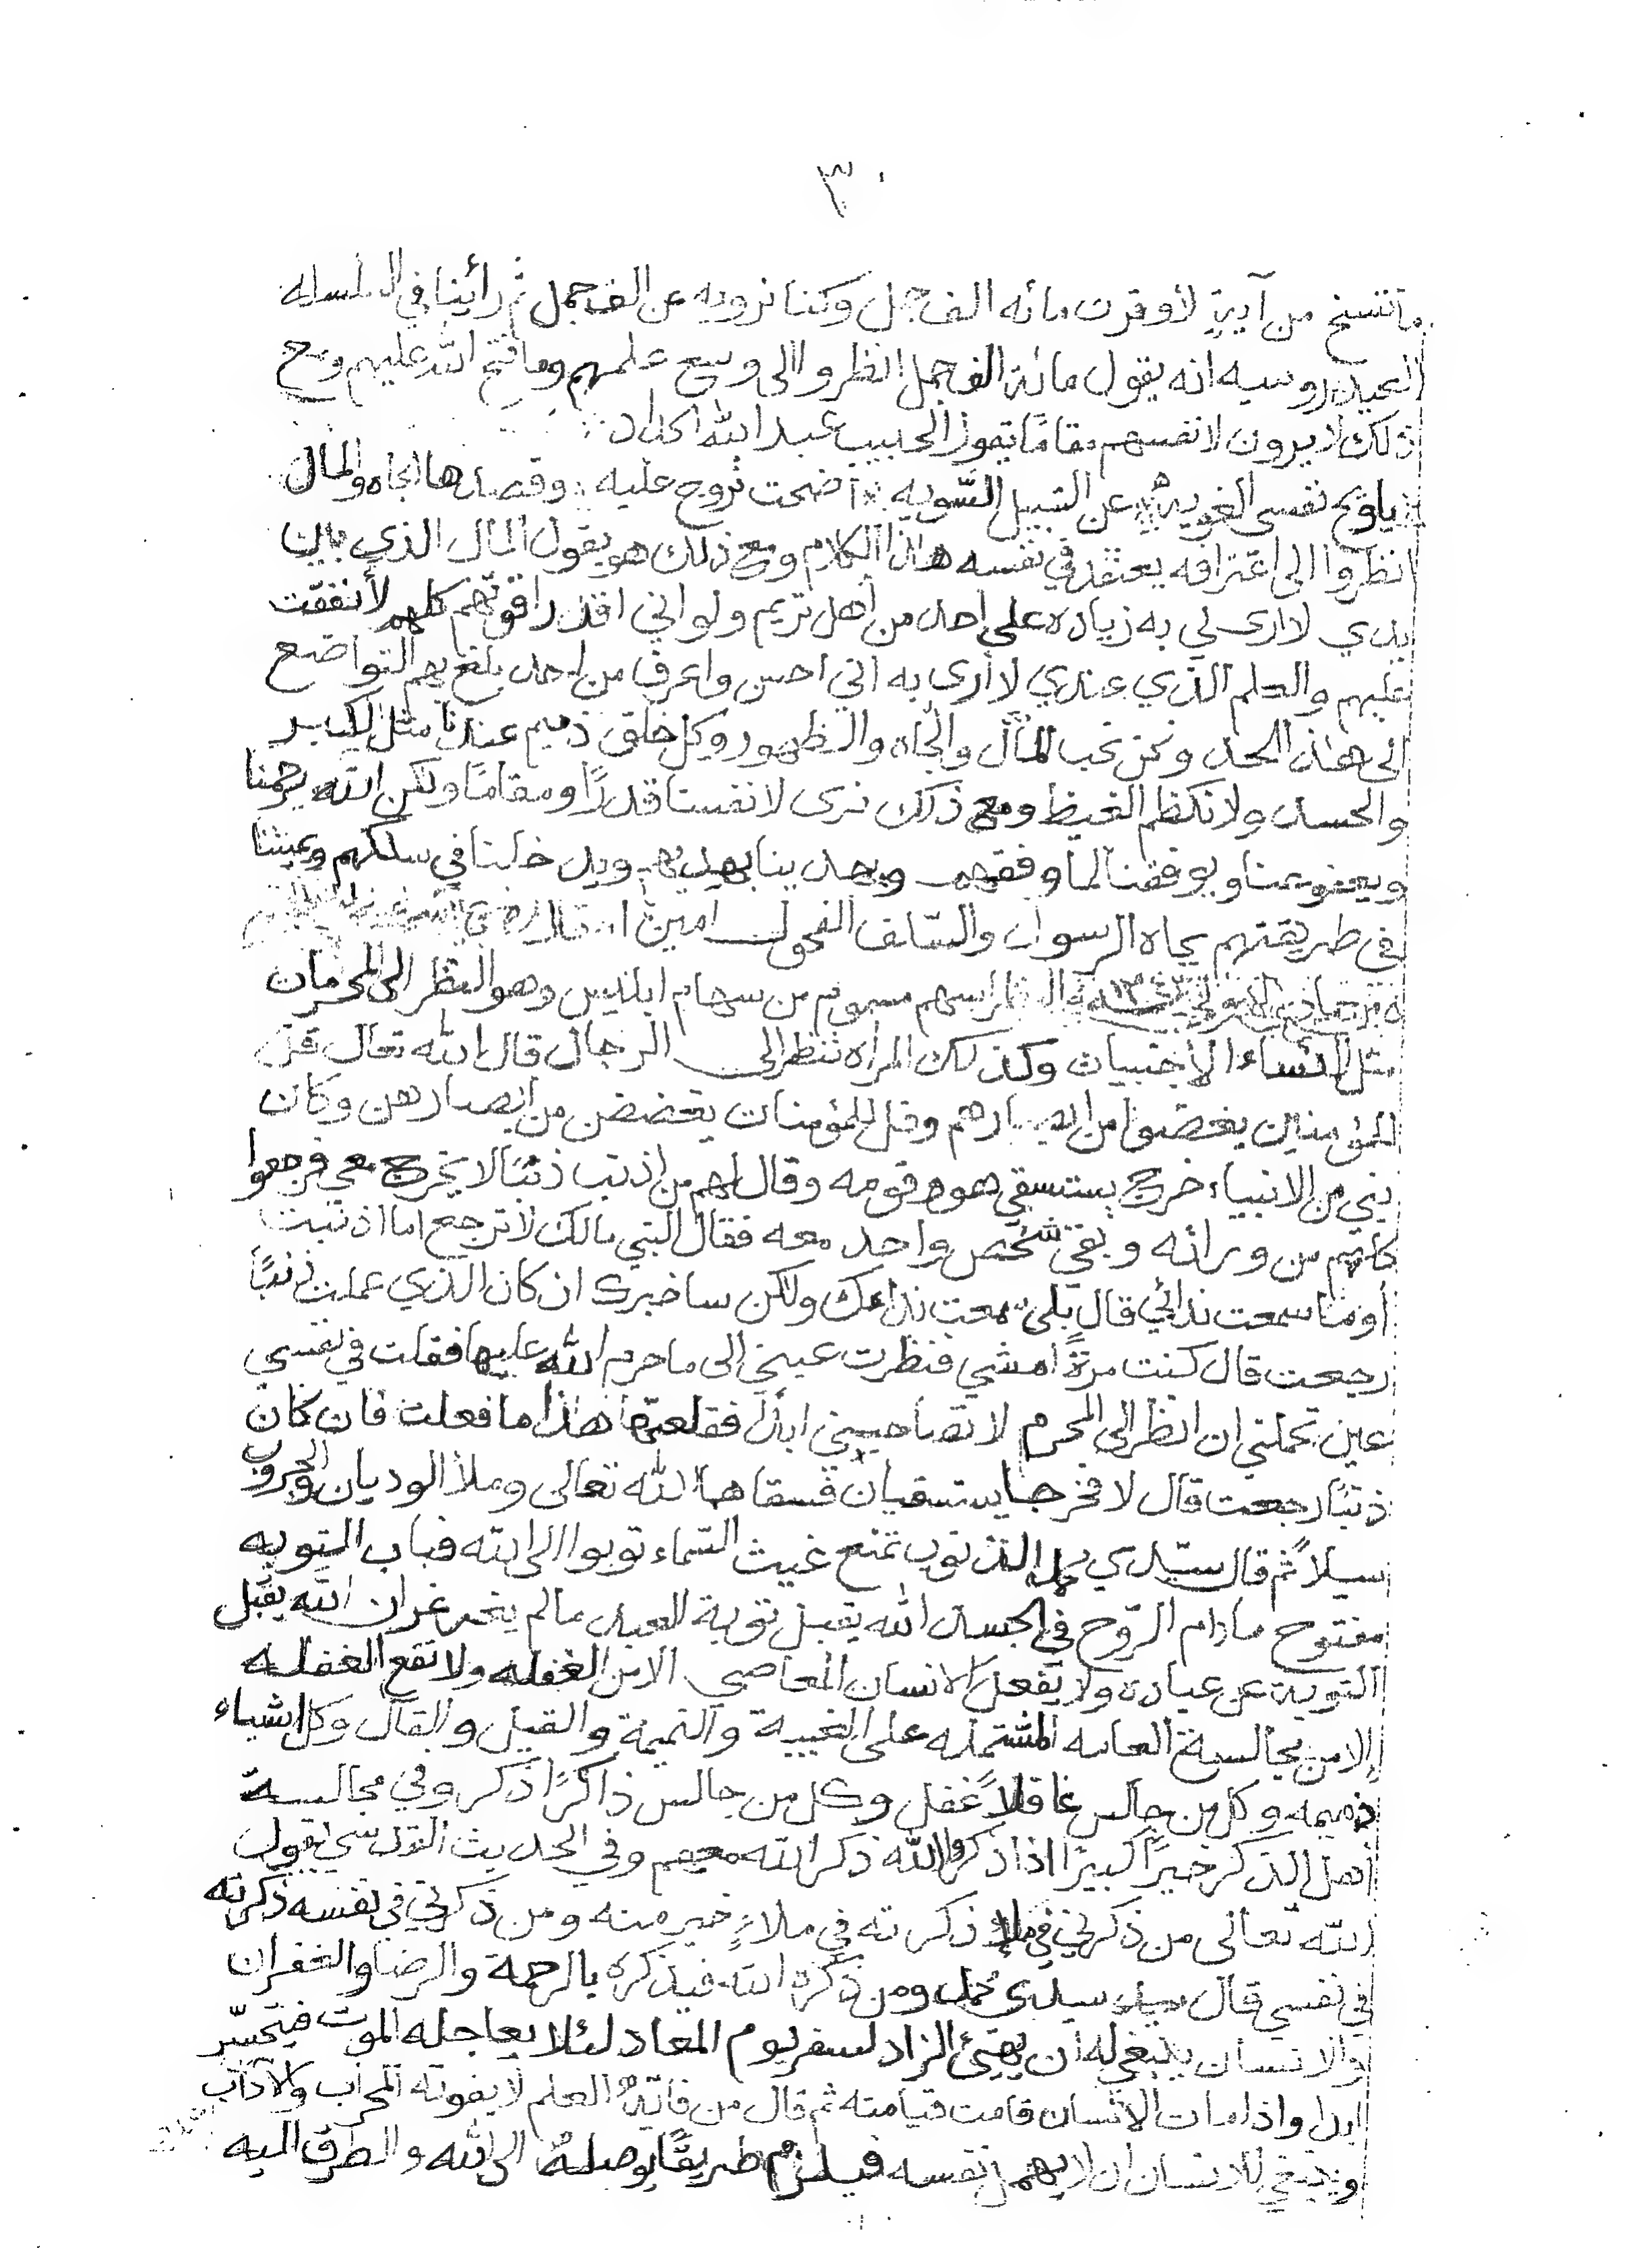 ٣٠
ما ننسخ من آيةٍ لأوقرت مائه الف جمل وكنا نرويه عن الف جمل ثم رأينا في السلسله
العيدروسيه انه يقول مائة الف جمل انظروا الى وسع علمهم وما فتح الله عليهم ومع
ذلك لا يرون لانفسهم مقامًا يقول الحبيب عبد الله الحداد :
ياويح نفسي الغويه عن السبيل السَّويه اضحت تروح عليه وقصدها الجاه والمال
انظروا الى اعترافه يعتقد في نفسه هاذا الكلام ومع ذلك هو يقول المال الذي بين
يدي لا ارى لي به زياده على احد من اهل تريم ولو اني اقدر اقوتهم كلهم لأنفقت
عليهم والعلم الذي عندي لا أرى به اني احسن واعرف من احد بلغ بهم التواضع
الى هذا الحد ونحن نحب المال والجاه والظهور وكل خلق ذميم عندنا مثل الكبر
والحسد ولا نكظم الغيظ ومع ذلك نرى لانفسنا قدرًا ومقامًا ولكن الله يرحمنا
ويعفو عنا ويوفقنا لما وفقهم ويهدينا بهديهم ويدخلنا في سلكهم ويميتنا
في طريقتهم بجاه الرسول والسلف الفحول امين
سهم مسموم من سهام ابليس وهو النظر الى المحرمات
مثل النساء الأجنبيات وكذلك المراه تنظر الى الرجال قال الله تعالى قل
للمؤمنين يغضوا من ابصارهم وقل للمؤمنات يغضضن من ابصارهن وكان
نبي من الانبياء خرج يستسقي هو وقومه وقال لهم من اذنب ذنبًا لا يخرج معي فرجعوا
كلهم من ورائه وبقي شخص واحد معه فقال النبي مالك لا ترجع اما اذنبت
أوما سمعت ندائي قال بلى سمعت نداءك ولكن ساخبرك ان كان الذي عملت ذنبًا
رجعت قال كنت مرةً امشي فنظرت عيني الى ما حرم الله عليها فقلت في نفسي
عين تحملني ان انظر الى المحرم لا تصاحبيني ابدًا فقلعتها هذا ما فعلت فان كان
ذنبًا رجعت قال لا فخرجا يستسقيان فسقاهما الله تعالى وملأ الوديان والجروب
سيلاً ثم قال سيّدي الذنوب تمنع غيث السَّماء توبوا الى الله فباب التوبه
مفتوح مادام الرّوح في الجسد الله يقبل توبة العبد مالم يغرغر ان الله يقبل
التوبة عن عباده ولا يفعل الانسان المعاصي الا من الغفله ولا تقع الغفله
إلا من مجالسة العامه المشتمله على الغيبة والنميمة والقيل والقال وكل اشياء
ذميمه وكل من جالس غافلاً غفل وكل من جالس ذاكرًا ذكر وفي مجالسة
أهل الذكر خيرًا كبيرًا اذا ذكروا الله ذكر الله معهم وفي الحديث القدسي يقول
الله تعالى من ذكرني في ملاءٍ ذكرته في ملاءٍ خير منه ومن ذكرني في نفسه ذكرته
في نفسي قال سيدي ومن ذكره الله فيذكره بالرحمة والرضا والغفران
والانسان ينبغي له أن يهيئ الزاد لسفر يوم المعاد لئلا يعاجله الموت فيتحسّر
ابدا واذا مات الانسان قامت قيامته ثم قال من فاته العلم لا يفوته المحراب والآداب
وينبغي للانسان ان لا يهمل نفسه فيلزم طريقًا يوصله الى الله والطرق اليه